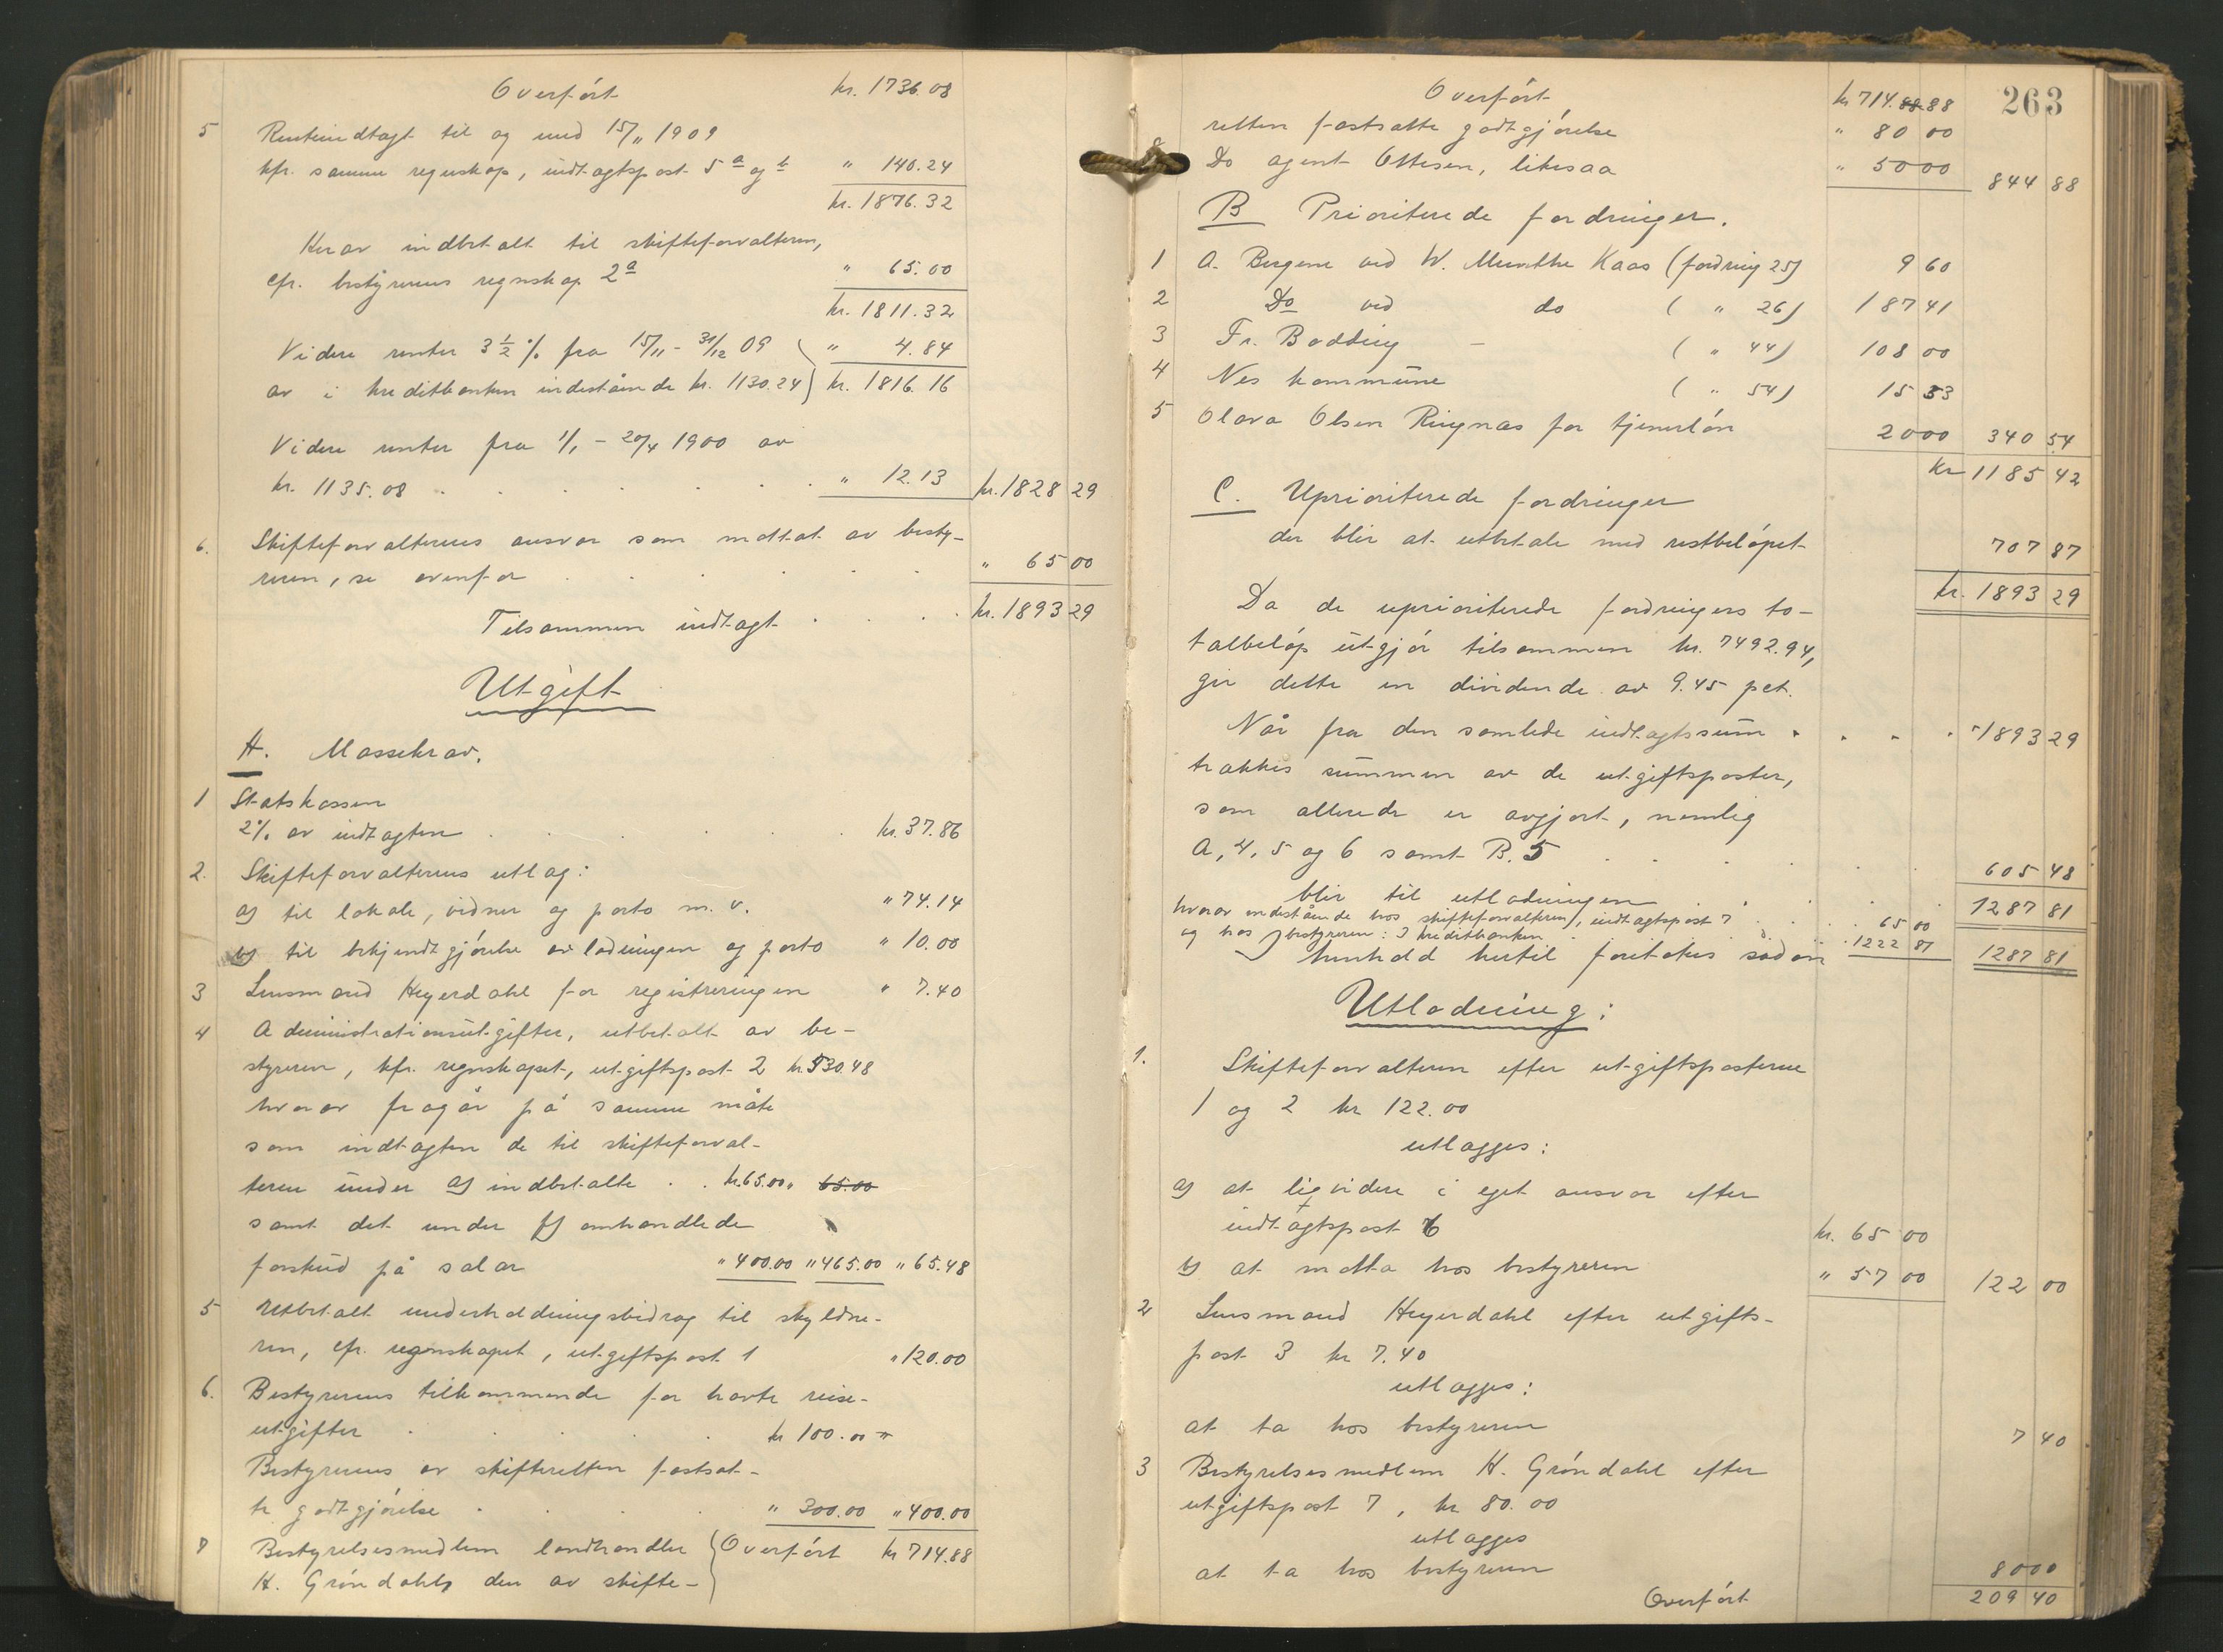 Overført kr. 1736.08
5 Renteindtægt til og med 15/11 1909
kfr. samme regnskap, indtægtspost 5 a og b " 140.24
kr. 1876.32
Herav indbetalt til skifteforvalteren,
cfr. bestyrerens regnskap 2a " 65.00
kr. 1811.32
Videre renter 3 1/2 % fra 15/11 - 31/12 09 " 4.84
av i kreditbanken indestående kr. 1130.24 kr. 1816.16
Videre renter fra 1/1 - 20/4 1900 av
kr. 1135.08 . . . . . " 12.13 kr. 1828 29
6. Skifteforvalterens ansvar som mottat av besty-
reren, se ovenfor . . . . . " 65 00
Tilsammen indtægt . . . . kr. 1893 29
Utgift
A. Massekrav.
1 Statskassen
2% av indtægten . . . . . kr. 37.86
2. Skifteforvalterens utlæg:
a) til lokale, vidner og porto m. v. " 74.14
b) til bekjendtgjørelse av lodningen og porto " 10.00
3 Lensmand Heyerdahl for registreringen " 7.40
4 Administrationsutgifter, utbetalt av be-
styreren, kfr. regnskapet, utgiftspost 2 kr. 530.48
hvorav fragår på samme måte
som indtægten de til skifteforval-
teren under a) indbetalte . . kr. 65.00 " 65.00
samt det under f) omhandlede
forskud på salær " 400.00 " 465.00 " 65.48
5 Utbetalt underholdningsbidrag til skyldne-
ren, cfr. regnskapet, utgiftspost 1 " 120.00
6. Bestyrerens tilkommende for havte reise-
utgifter . . . . . kr 100.00
Bestyrerens av skifteretten fastsat-
te godtgjørelse . . . . " 300.00 " 400.00
7 Bestyrelsesmedlem landhandler Overført kr 714.88
H. Grøndahls den av skifte-
263
Overført kr 714.88 88
retten fastsatte godtgjørelse " 80 00
8 Do agent Ottesen, likesaa " 50 00 844 88
B Prioriterede fordringer.
1 A. Bergene ved W. Munthe Kaas (fordring 25) 9 60
2 Do ved do ( " 26) 187 41
3 Fr. Bodding - ( " 44) 108 00
4 Nes kommune ( " 54) 15 53
5 Olava Olsen Ringnæs for tjenerløn 20 00 340 54
kr 1185 42
C. Uprioriterede fordringer
der blir at utbetale med restbeløpet 707 87
kr. 1893 29
Da de uprioriterede fordringers to-
talbeløp utgjør tilsammen kr. 7492.94,
gir dette en dividende av 9.45 pct.
Når fra den samlede indtægtssum . . . . 1893 29
trækkes summen av de utgiftsposter,
som allerede er avgjort, nemlig
A, 4, 5 og 6 samt B. 5 . . . . . 605 48
blir til utlodningen . . . . 1287 81
hvorav indestående hos skifteforvalteren, indtægtspost 7 . . . 65 00
og hos bestyreren i kreditbanken . . . 1222 81
henhold hertil foretokes sådan 1287 81
Utlodning:
1. Skifteforvalteren efter utgiftsposterne
1 og 2 kr 122.00
utlægges:
a) at liqvidere i eget ansvar efter
indtægtspost 6 kr. 65 00
b) at motta hos bestyreren " 57 00 122 00
2 Lensmand Heyerdahl efter utgifts-
post 3 kr 7.40
utlægges:
at ta hos bestyreren 7 40
3 Bestyrelsesmedlem H. Grøndahl efter
utgiftspost 7, kr 80.00
utlægges
at ta hos bestyreren 80 00
Overført 209 40